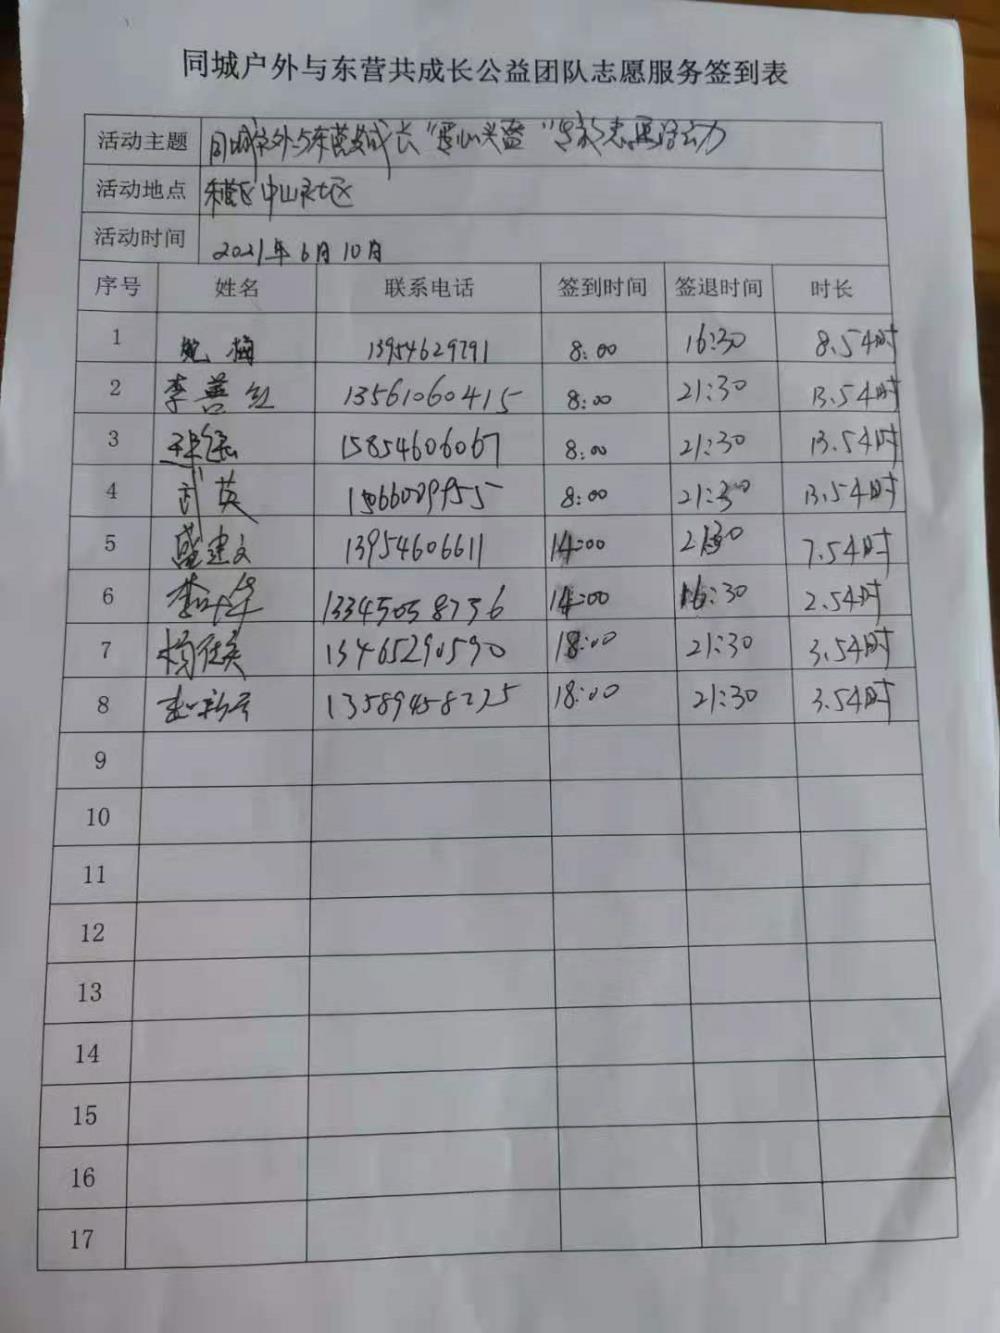 同城户外与东营共成长公益团队志愿服务签到表
活动主题 同城户外与东营共成长“爱心义卖”志愿活动
活动地点 东营区中山社区
活动时间 2021年6月10日
序号 姓名 联系电话 签到时间 签退时间 时长
1 鲍梅 13954629291 8:00 16:30 8.5小时
2 李善红 13561060415 8:00 21:30 13.5小时
3 15854606067 8:00 21:30 13.5小时
4 武英 8:00 21:30 13.5小时
5 盛建文 13954606611 14:00 21:30 7.5小时
6 13345058756 14:00 16:30 2.5小时
7 13465290590 18:00 21:30 3.5小时
8 18:00 21:30 3.5小时
9
10
11
12
13
14
15
16
17